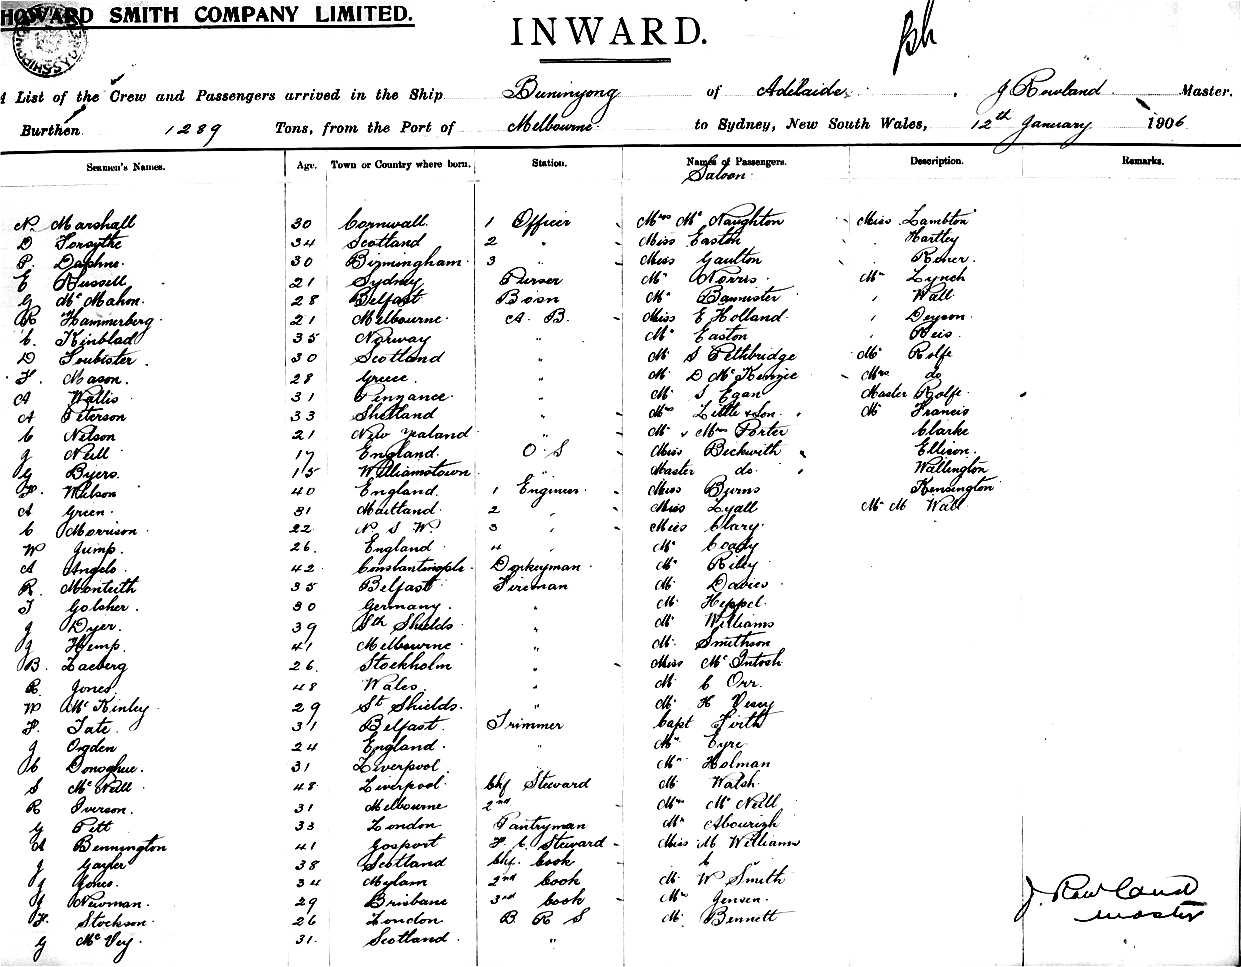 HOWARD SMITH COMPANY LIMITED.
INWARD.
A List of the Crew and Passengers arrived in the Ship Buninyong of Adelaide, J Rowland Master.
Burthen 1289 Tons, from the Port of Melbourne to Sydney, New South Wales, 12th January 1906
Seamen's Names. Age. Town or Country where born. Station. Names of Passengers. Description. Remarks.
Saloon
N. Marshall 30 Cornwall. 1 Officer Mrs Mc Naughton Miss Lambton
D Forsythe 34 Scotland 2 " Miss Easton Hartley
P. Daphne. 30 Birmingham. 3 " Miss Gaulton
E Russell 21 Sydney Purser Mr Norris Mr Lynch
G Mc Mahon. 28 Belfast Bosn Mr Bannister " Wall
R Hammerberg 21 Melbourne A. B. Miss E Holland " Deyson
C. Kinblad 35 Norway " Mr Easton " Reis
D Soubister. 30 Scotland " Mr S Pethbridge Mr Rolfe
F. Mason. 28 Greece. " Mr D McKenzie Mrs do
A Wallis 31 Penzance. " Mr S Egan Master Rolfe
A Peterson 33 Shetland " Mrs Little & Son. Mr Francis
C Nelson 21 New Zealand " Mr & Mrs Porter Clarke
J Neill 17 England. O. S Miss Beckwith Ellison.
G Byers. 15 Williamstown " Master do. Wallington
F. Wilson 40 England. 1 Engineer Miss Burns Kensington
A Green. 31 Maitland 2 " Miss Lyall Mr M Wall
C Morrison. 22 N. S W. 3 " Miss Clary.
W Jump. 26. England 4 " Mr Coady
A Angelo. 42 Constantinople. Donkeyman. Mr Riley
R. Monteith 35 Belfast Fireman Mr Davies
J Golsher. 30 Germany. " Mr Heppel.
J Dyer. 39 Sth Shields. " Mr Williams
J Hemp. 41 Melbourne " Mr Smithson
B. Zaeberg 26. Stockholm " Miss McIntosh
R. Jones. 48 Wales. " Mr C Orr.
W McKinley. 29 St Shields. " Mr H Vesey
F. Tate. 31 Belfast. Trimmer Capt Firth
J Ogden 24 England. " Mr Eyre
C Donoghue. 31 Liverpool " Mr Holman
S McNeill 48 Liverpool. Chf Steward Mr Walsh.
R Iverson. 31 Melbourne 2nd Mrs McNeill
G Pitt 33 London Pantryman Mr Abourigh
A Bennington 41 Gosport F. C. Steward Miss M Williams
J Gayler 38 Scotland Chf. Cook " C "
J Jones. 34 Mylam 2nd Cook Mr W Smith
J Newman. 29 Brisbane 3rd Cook Mrs Jensen
F. Stockson. 26 London B R S Mr Bennett
G McVey. 31. Scotland. "
J. Rowland
Master